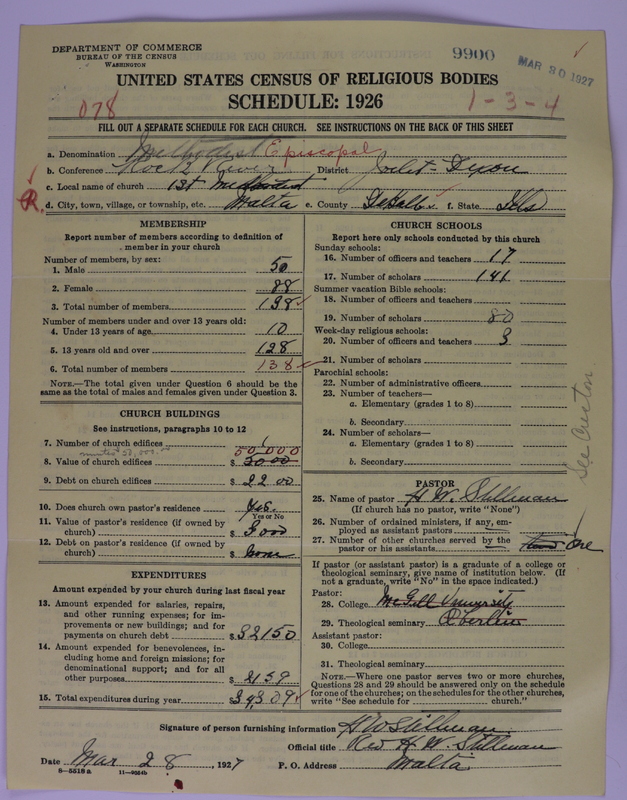 DEPARTMENT OF COMMERCE
BUREAU OF THE CENSUS
WASHINGTON
9900
MAR 30 1927
UNITED STATES CENSUS OF RELIGIOUS BODIES
SCHEDULE: 1926
078
1-3-4
FILL OUT A SEPARATE SCHEDULE FOR EACH CHURCH. SEE INSTRUCTIONS ON THE BACK OF THIS SHEET
a. Denomination Methodist Episcopal
b. Conference Rock River District Joliet-Dixon
c. Local name of church 1st Methodist
R.
d. City, town, village, or township, etc. Malta e. County DeKalb f. State Ills
MEMBERSHIP
Report number of members according to definition of
member in your church
Number of members, by sex:
1. Male 50
2. Female 88
3. Total number of members 138
Number of members under and over 13 years old:
4. Under 13 years of age 10
5. 13 years old and over 128
6. Total number of members 138
NOTE.—The total given under Question 6 should be the
same as the total of males and females given under Question 3.
CHURCH BUILDINGS
See instructions, paragraphs 10 to 12
7. Number of church edifices 1
50,000
8. Value of church edifices $ 50 00
9. Debt on church edifices $ 22 00
10. Does church own pastor's residence Yes
Yes or No
11. Value of pastor's residence (if owned by
church) $ 3000
12. Debt on pastor's residence (if owned by
church) $ None
EXPENDITURES
Amount expended by your church during last fiscal year
13. Amount expended for salaries, repairs,
and other running expenses; for im-
provements or new buildings; and for
payments on church debt $ 32150
14. Amount expended for benevolences,
including home and foreign missions; for
denominational support; and for all
other purposes $ 2159
15. Total expenditures during year $ 34309
CHURCH SCHOOLS
Report here only schools conducted by this church
Sunday schools:
16. Number of officers and teachers 17
17. Number of scholars 141
Summer vacation Bible schools:
18. Number of officers and teachers
19. Number of scholars 80
Week-day religious schools:
20. Number of officers and teachers 3
21. Number of scholars
Parochial schools:
22. Number of administrative officers
23. Number of teachers—
a. Elementary (grades 1 to 8)
b. Secondary
24. Number of scholars—
a. Elementary (grades 1 to 8)
b. Secondary
PASTOR
25. Name of pastor H W. Stillman
(If church has no pastor, write "None")
26. Number of ordained ministers, if any, em-
ployed as assistant pastors
27. Number of other churches served by the
pastor or his assistants One
If pastor (or assistant pastor) is a graduate of a college or
theological seminary, give name of institution below. (If
not a graduate, write "No" in the space indicated.)
Pastor:
28. College McGill University
29. Theological seminary Oberlin
Assistant pastor:
30. College
31. Theological seminary
NOTE.—Where one pastor serves two or more churches,
Questions 28 and 29 should be answered only on the schedule
for one of the churches; on the schedules for the other churches,
write "See schedule for church."
Signature of person furnishing information H W Stillman
Official title Rev H. W. Stillman
Date Mar 28, 1927 P. O. Address Malta
8—5518a 11—9264b